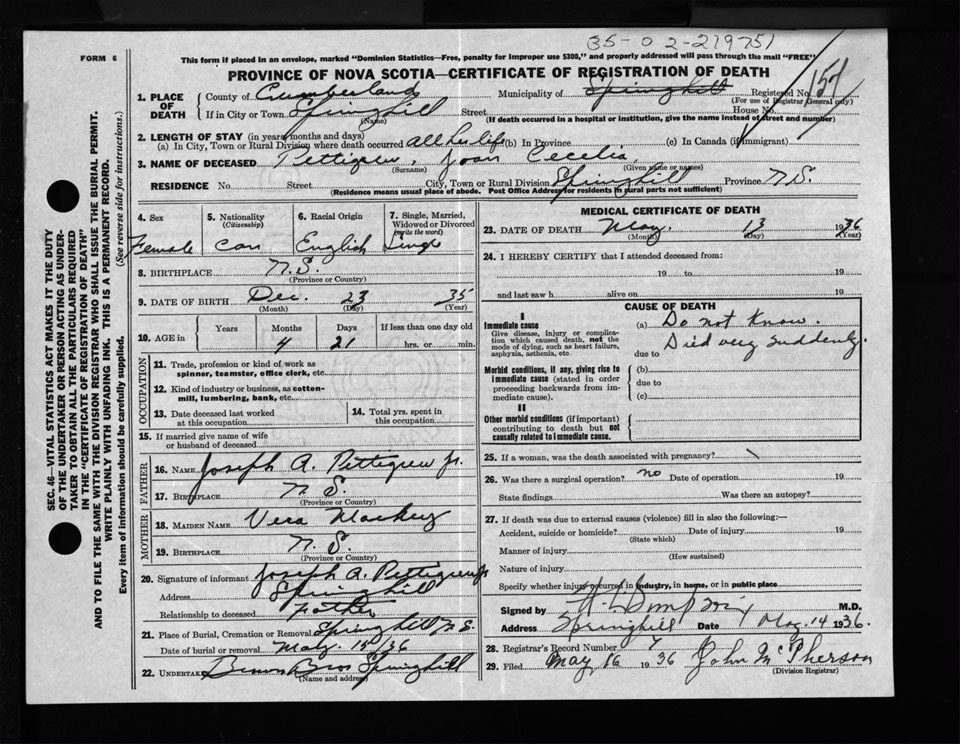 35-02-219751
FORM 6
This form if placed in an envelope, marked "Dominion Statistics—Free, penalty for improper use $300," and properly addressed will pass through the mail "FREE"
PROVINCE OF NOVA SCOTIA—CERTIFICATE OF REGISTRATION OF DEATH
1. PLACE OF DEATH County of Cumberland Municipality of Springhill Registered No.
(For use of Registrar General only)
If in City or Town Springhill Street House No.
(Name) (If death occurred in a hospital or institution, give the name instead of street and number)
2. LENGTH OF STAY (in years, months and days)
(a) In City, Town or Rural Division where death occurred all her life (b) In Province (c) In Canada (if immigrant)
3. NAME OF DECEASED Pettigrew, Joan Cecelia
(Surname) (Given name or names)
RESIDENCE No. Street City, Town or Rural Division Springhill Province N.S.
(Residence means usual place of abode. Post Office Address for residents in rural parts not sufficient)
SEC. 46—VITAL STATISTICS ACT MAKES IT THE DUTY
OF THE UNDERTAKER OR PERSON ACTING AS UNDER-
TAKER TO OBTAIN ALL THE PARTICULARS REQUIRED
IN THE "CERTIFICATE OF REGISTRATION OF DEATH"
AND TO FILE THE SAME WITH THE DIVISION REGISTRAR WHO SHALL ISSUE THE BURIAL PERMIT.
WRITE PLAINLY WITH UNFADING INK. THIS IS A PERMANENT RECORD.
Every item of information should be carefully supplied. (See reverse side for instructions.)
4. Sex 5. Nationality 6. Racial Origin 7. Single, Married, Widowed or Divorced
(Citizenship) (write the word)
Female Can English Single
8. BIRTHPLACE N.S.
(Province or Country)
9. DATE OF BIRTH Dec. 23 35
(Month) (Day) (Year)
10. AGE in Years Months Days If less than one day old
4 21 hrs. or min.
OCCUPATION
11. Trade, profession or kind of work as
spinner, teamster, office clerk, etc.
12. Kind of industry or business, as cotton-
mill, lumbering, bank, etc.
13. Date deceased last worked
at this occupation
14. Total yrs. spent in
this occupation
15. If married give name of wife
or husband of deceased
FATHER
16. NAME Joseph A. Pettigrew Jr.
17. BIRTHPLACE N.S.
(Province or Country)
MOTHER
18. MAIDEN NAME Vera
19. BIRTHPLACE N.S.
(Province or Country)
20. Signature of informant Joseph A. Pettigrew Jr
Address Springhill
Relationship to deceased Father
21. Place of Burial, Cremation or Removal Springhill N.S.
Date of burial or removal May 15/36
22. UNDERTAKER Brown Bros Springhill
(Name and address)
MEDICAL CERTIFICATE OF DEATH
23. DATE OF DEATH May. 13 1936
(Month) (Day) (Year)
24. I HEREBY CERTIFY that I attended deceased from:
19 to 19
and last saw h alive on 19
CAUSE OF DEATH
I
Immediate cause
Give disease, injury or complica-
tion which caused death, not the
mode of dying, such as heart failure,
asphyxia, asthenia, etc.
(a) Do not Know.
Died very suddenly.
due to
Morbid conditions, if any, giving rise to
immediate cause (stated in order
proceeding backwards from im-
mediate cause).
(b)
due to
(c)
II
Other morbid conditions (if important)
contributing to death but not
causally related to immediate cause.
25. If a woman, was the death associated with pregnancy?
26. Was there a surgical operation? no Date of operation 19
State findings Was there an autopsy?
27. If death was due to external causes (violence) fill in also the following:—
Accident, suicide or homicide? Date of injury 19
(State which)
Manner of injury
(How sustained)
Nature of injury
Specify whether injury occurred in industry, in home, or in public place
Signed by M.D.
Address Springhill Date May. 14 1936.
28. Registrar's Record Number
29. Filed May 16 1936 John McPherson
(Division Registrar)